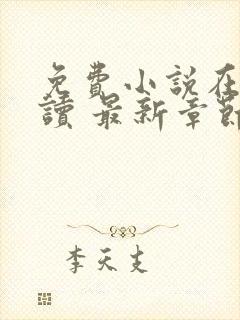 免費小說在
讀 最新章節
李天支